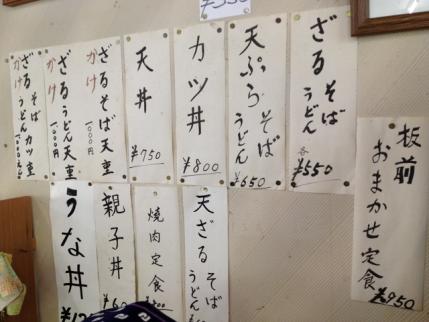 ざる そば
うどん
各
¥550
天ぷら そば
うどん
¥650
カツ丼
¥800
天丼
¥750
ざるそば天重
かけ
1000円
ざるうどん天重
かけ
1000円
ざる そば
かけ うどん カツ重
板前
おまかせ定食
¥950
天ざる そば
うどん
焼肉定食
親子丼
うな丼